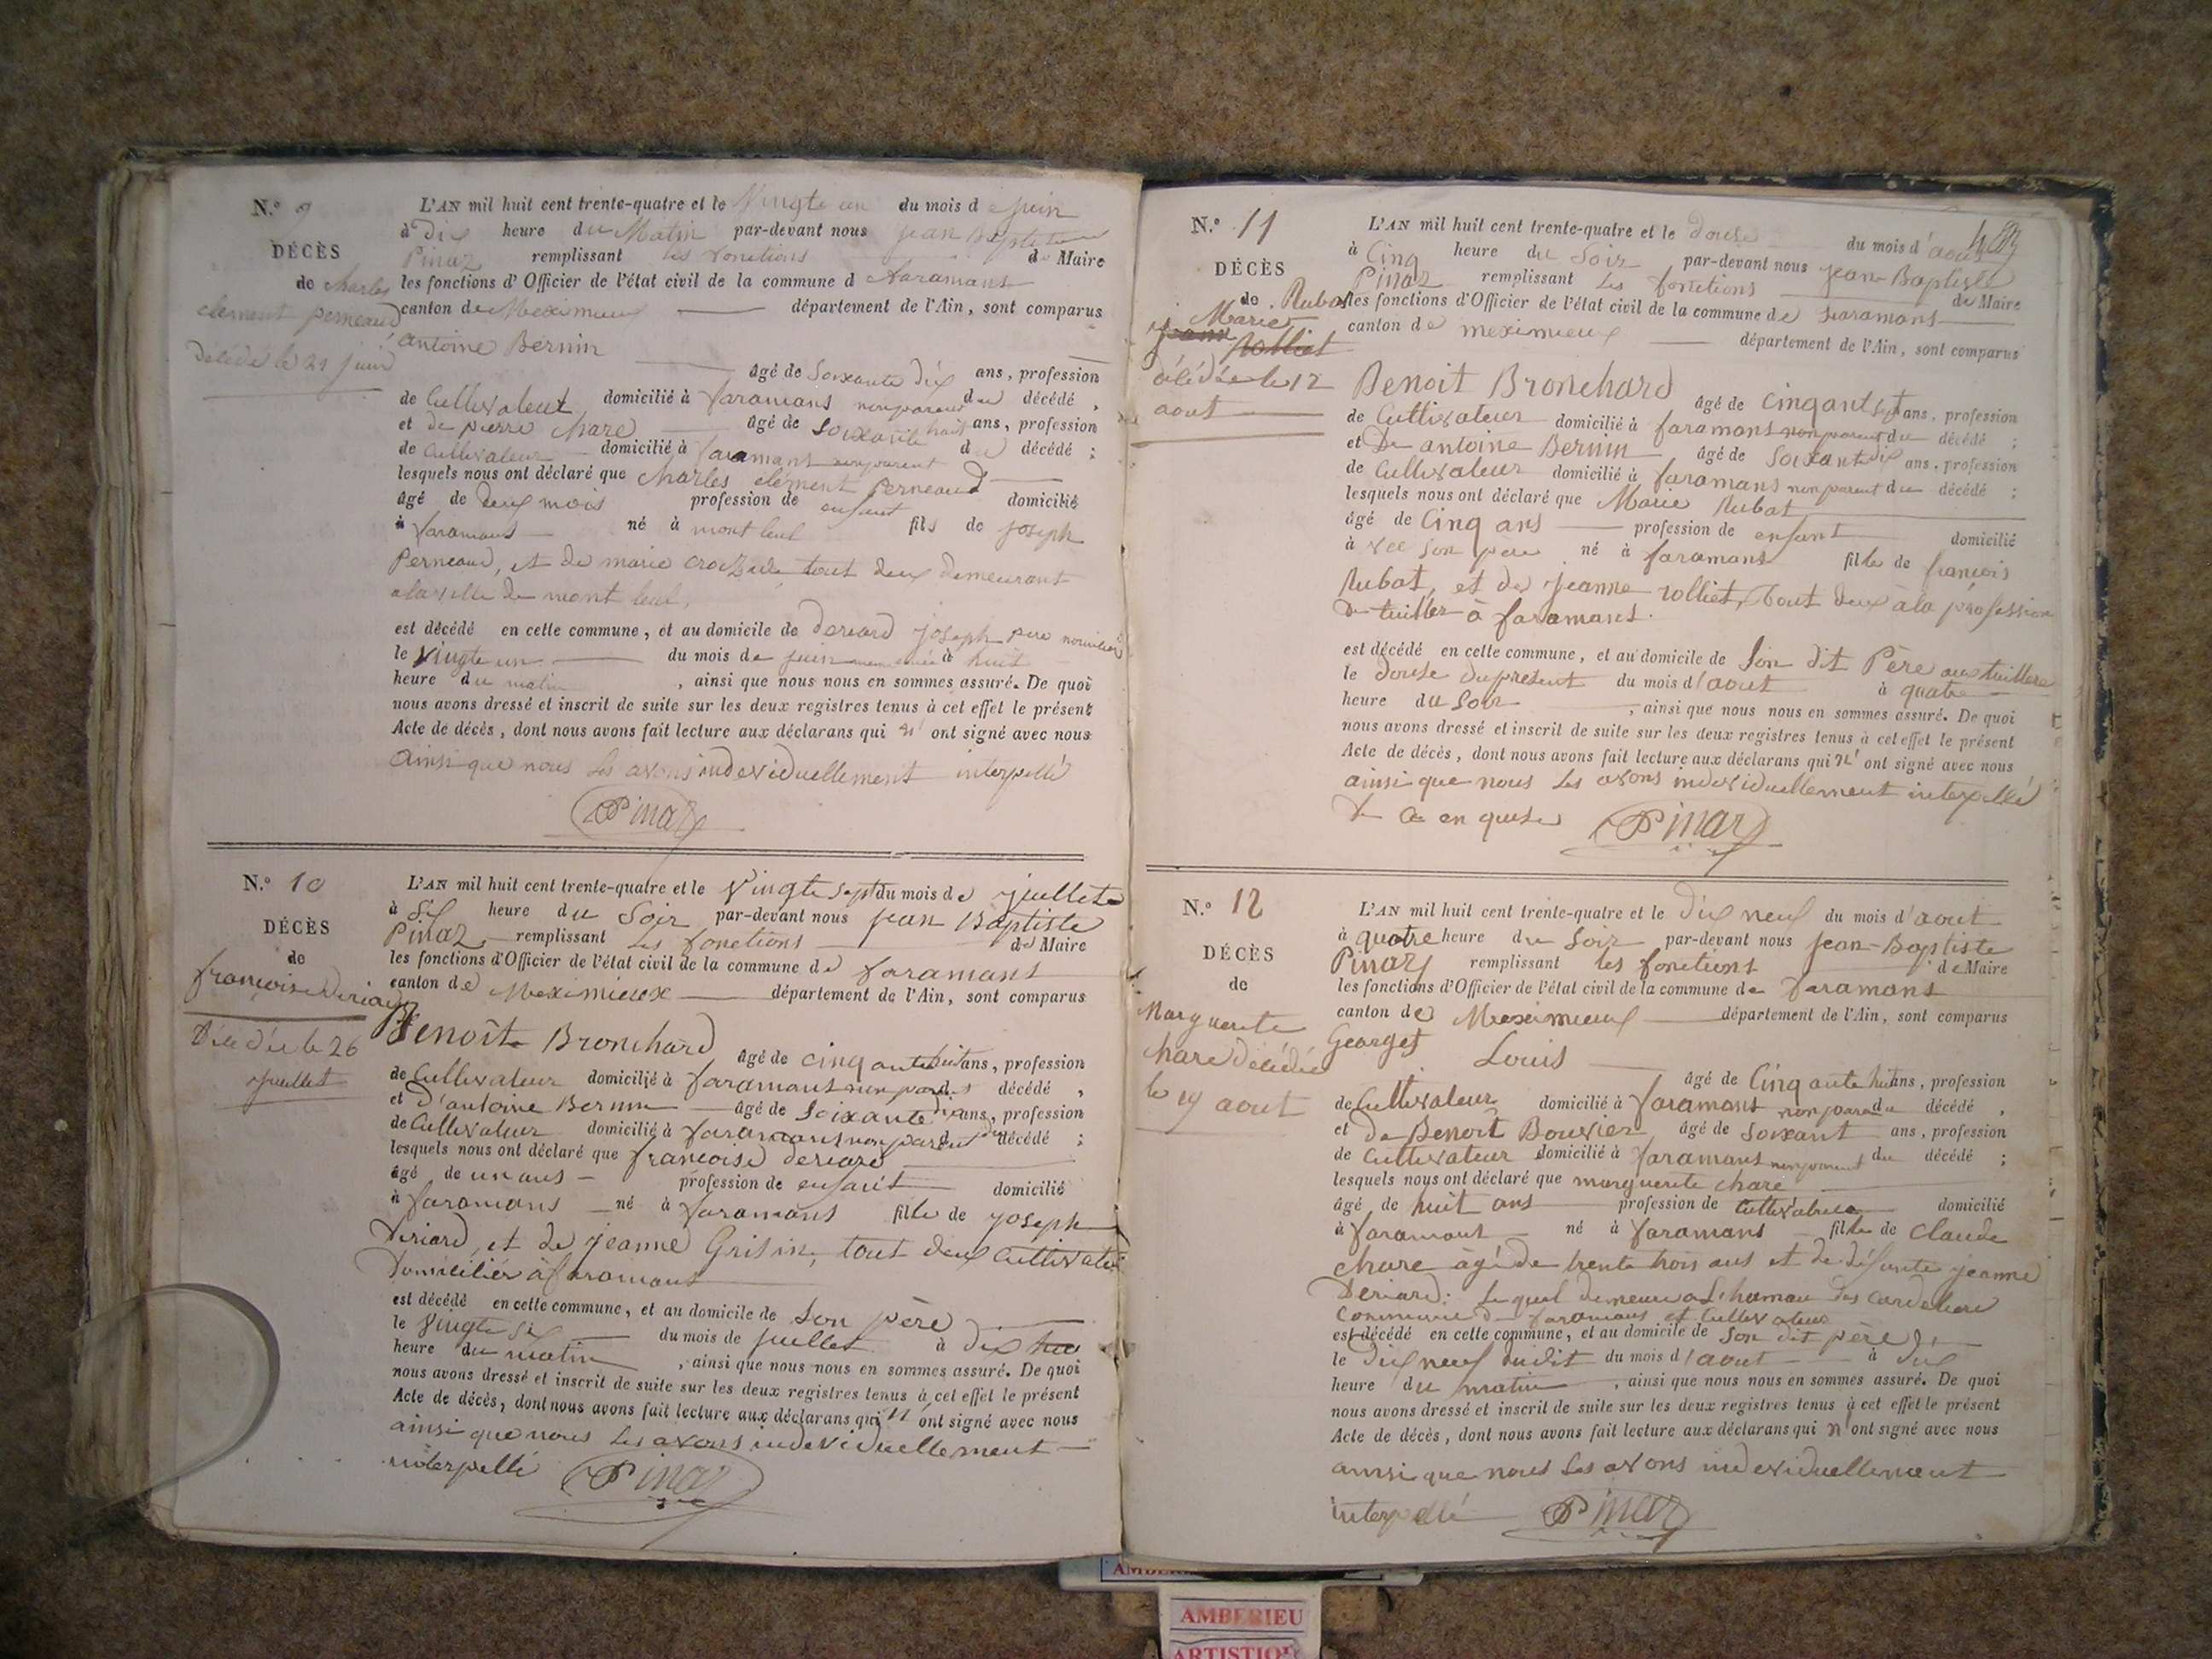 N.° 9
DÉCÈS
de Charles
clement perneaud
décédé le 21 juin
L'AN mil huit cent trente-quatre et le Vingte un du mois de juin
à Dix heure du Matin par-devant nous jean Baptiste
Pinaz remplissant les fonctions de Maire
les fonctions d'Officier de l'état civil de la commune d faramans
canton de Meximieux département de l'Ain, sont comparus
antoine Bernin
âgé de Soixante dix ans, profession
de Cultivateur domicilié à faramans non parent du décédé,
et de pierre chare âgé de Soixante huit ans, profession
de Cultivateur domicilié à faramans non parent du décédé;
lesquels nous ont déclaré que charles clement perneaud
âgé de deux mois profession de enfant domicilié
à faramans né à mont leul fils de joseph
perneaud, et de marie tout deux demeurant
a la ville de mont leul,
est décédé en cette commune, et au domicile de deriard joseph père nouricier
le Vingte un du mois de juin à huit
heure du matin, ainsi que nous nous en sommes assuré. De quoi
nous avons dressé et inscrit de suite sur les deux registres tenus à cet effet le présent
Acte de décès, dont nous avons fait lecture aux déclarans qui n' ont signé avec nous
ainsi que nous les avons indeviduellement interpellé
Pinaz
N.° 10
DÉCÈS
de
françoise deriard
Décédée le 26
juillet
L'AN mil huit cent trente-quatre et le Vingte sept du mois de juillete
à Six heure du Soir par-devant nous jean Baptiste
Pinaz remplissant les fonctions de Maire
les fonctions d'Officier de l'état civil de la commune de faramans
canton de Meximieux département de l'Ain, sont comparus
Benoit Bronchard
âgé de cinq ante huit ans, profession
de Cultivateur domicilié à faramans non parent décédé,
et d'antoine Bernin âgé de Soixante dix ans, profession
de Cultivateur domicilié à faramans non parent du décédé;
lesquels nous ont déclaré que françoise deriard
âgé de un ans profession de enfant domicilié
à faramans né à faramans fille de joseph
Deriard, et de jeanne Grisin, tout deux Cultivateur
Domiciliés à faramans
est décédé en cette commune, et au domicile de Son père
le Vingte Six du mois de juillet à dix
heure du matin, ainsi que nous nous en sommes assuré. De quoi
nous avons dressé et inscrit de suite sur les deux registres tenus à cet effet le présent
Acte de décès, dont nous avons fait lecture aux déclarans qui n' ont signé avec nous
ainsi que nous les avons indeviduellement
interpellé
Pinaz
N.° 11
DÉCÈS
de Rubat
Marie
jeanne
rolliet
décédée le 12
aout
L'AN mil huit cent trente-quatre et le douse du mois d'aout
à Cinq heure du Soir par-devant nous jean-Baptiste
Pinaz remplissant les fonctions de Maire
les fonctions d'Officier de l'état civil de la commune de faramans
canton de meximieux département de l'Ain, sont comparus
Benoit Bronchard
âgé de cinqant sept ans, profession
de Cultivateur domicilié à faramans non parent du décédé;
et De antoine Bernin âgé de Soixant dix ans, profession
de Cultivateur domicilié à faramans non parent du décédé;
lesquels nous ont déclaré que Marie Rubat
âgé de Cinq ans profession de enfant domicilié
à Son père né à faramans fille de françois
Rubat, et de jeanne rolliet, tout deux à la profession
de tuillier à faramans.
est décédé en cette commune, et au domicile de Son dit Père
le douse du présent du mois d'aout à quatre
heure du Soir, ainsi que nous nous en sommes assuré. De quoi
nous avons dressé et inscrit de suite sur les deux registres tenus à cet effet le présent
Acte de décès, dont nous avons fait lecture aux déclarans qui n' ont signé avec nous
ainsi que nous les avons indeviduellement interpellé
Pinaz
N.° 12
DÉCÈS
de
Marguerite
chare décédée
le 19 aout
L'AN mil huit cent trente-quatre et le dix neuf du mois d'aout
à quatre heure du Soir par-devant nous jean-Baptiste
Pinaz remplissant les fonctions de Maire
les fonctions d'Officier de l'état civil de la commune de faramans
canton de Meximieux département de l'Ain, sont comparus
Georget Louis
âgé de Cinq ante huit ans, profession
de Cultivateur domicilié à faramans non parent du décédé,
et de Benoit Bouvier âgé de Soixant ans, profession
de Cultivateur domicilié à faramans non parent du décédé;
lesquels nous ont déclaré que marguerite chare
âgé de huit ans profession de domicilié
à faramans né à faramans fille de Claude
chare âgé de trente trois ans et de défunte jeanne
Deriard; Le quel demeure a L'hamau des
commune de faramans et Cultivateur
est décédé en cette commune, et au domicile de Son dit père
le dix neuf dudit du mois d'aout à dix
heure du matin, ainsi que nous nous en sommes assuré. De quoi
nous avons dressé et inscrit de suite sur les deux registres tenus à cet effet le présent
Acte de décès, dont nous avons fait lecture aux déclarans qui n' ont signé avec nous
ainsi que nous les avons indeviduellement
interpellé
Pinaz
AMBERIEU
ARTISTIQUE